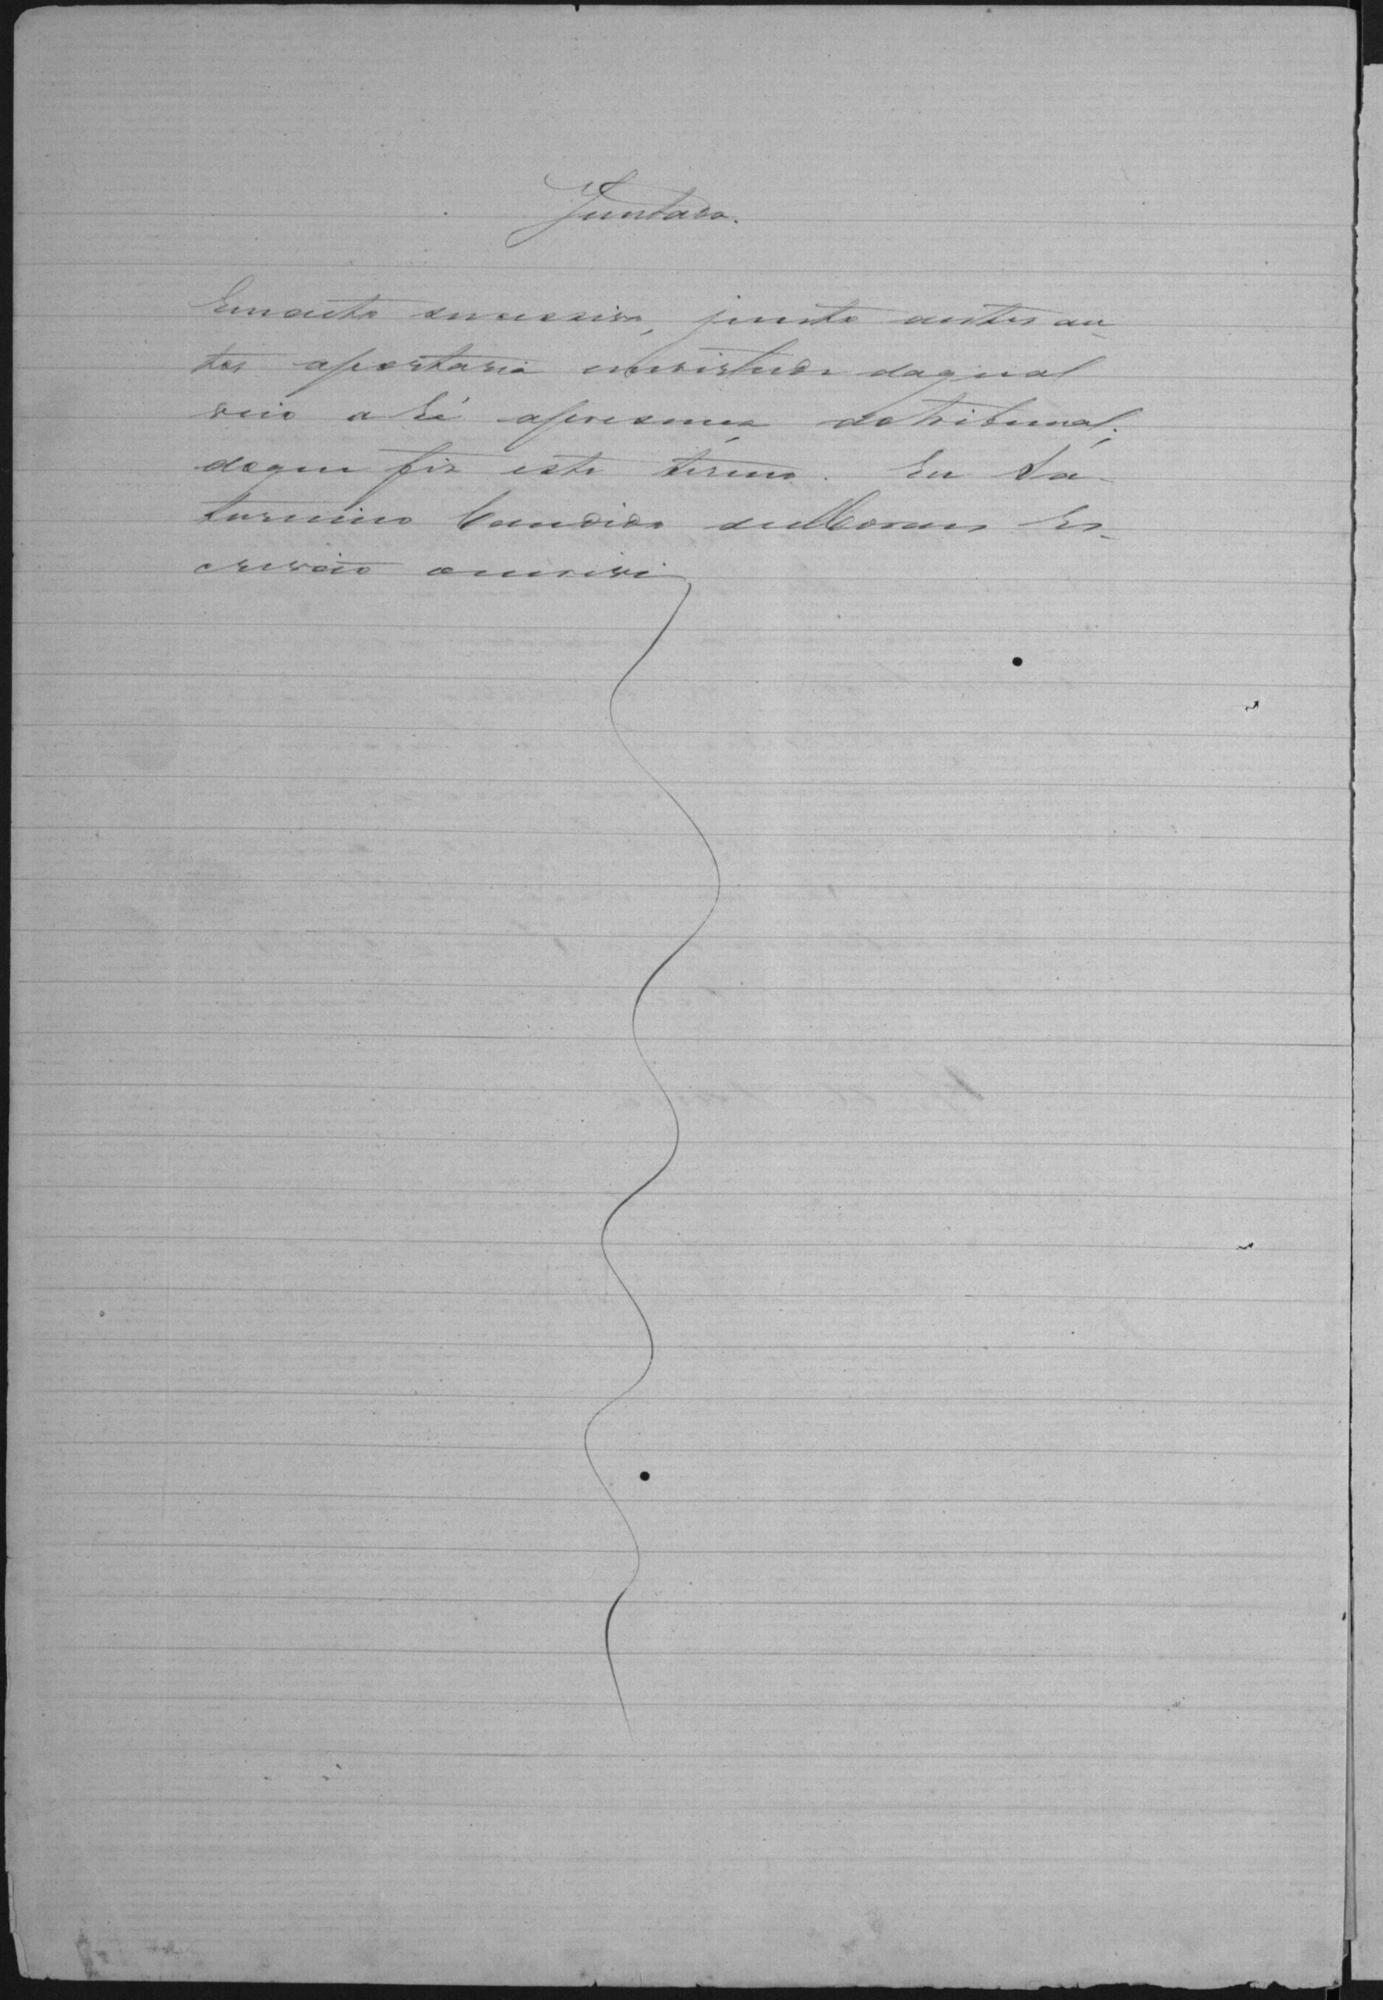 Juntada.
Em acto successivo, junto a estes au-
tos a portaria em virtude da qual
veio a Ré a presença do tribunal;
do que fiz este termo. Eu Sa-
turnino Candido de Moraes Es-
crivão o escrevi